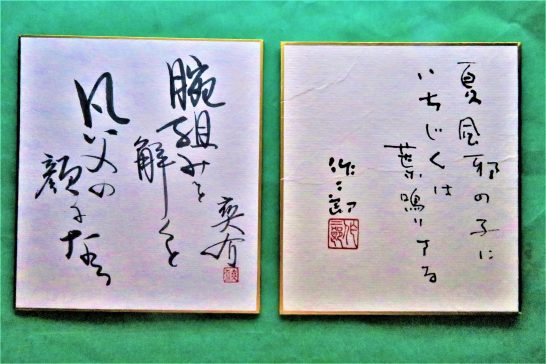 腕組みを
解くと
凡父の
顔になる
夏風邪の子に
いちじくは
葉鳴りする
作二郎